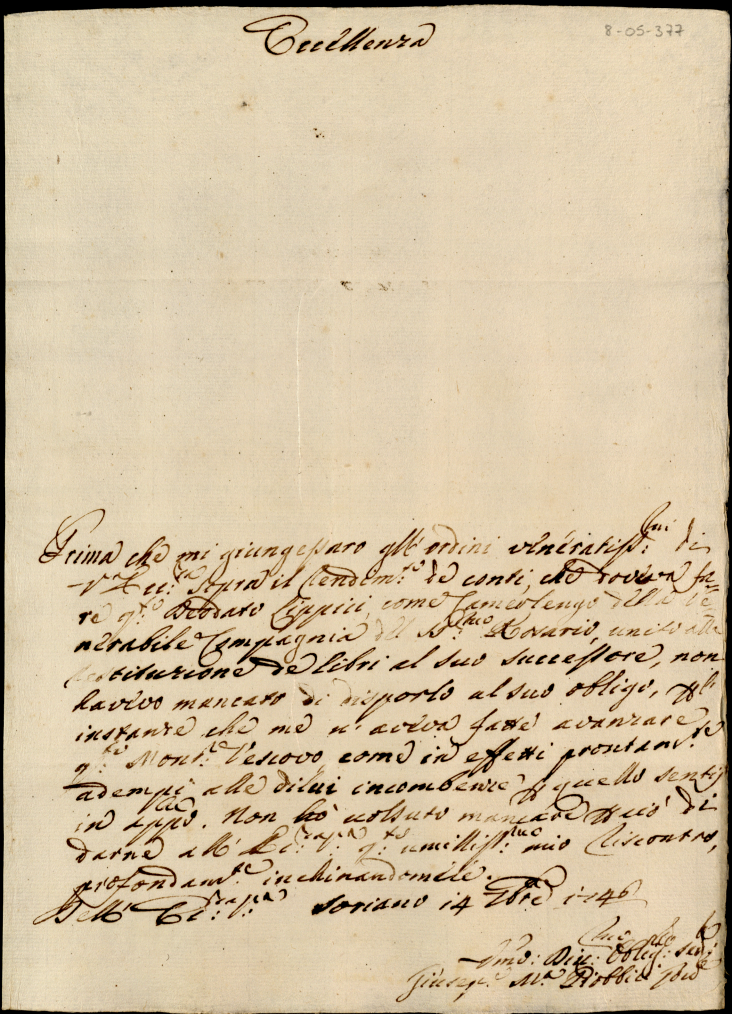 8-05-377
Eccellenza
Prima che mi giungessaro gl'ordini veneratiss:mi di
V. Ecc:za sopra il rendim:to de conti, che doveva fa=
re q:to Deodato Lippici, come Camerlengo della Ve=
nerabile Compagnia del SS:mo Rosario, unito alla
restituzione de libri al suo successore, non
havevo mancato di disporlo al suo obligo, p l'
instanze che me n'aveva fatte avanzare
q:to Mons:r Vescovo, come in effetti prontam:te
adempì alle di lui incombenze p quello sentij
in app:o. Non hò voluto mancare p ciò di
darne all' q:to umiliss:mo mio riscontro,
profondam:te inchinandomele.
Dell' Soriano 14 7bre 1746
Giusep:e M:a